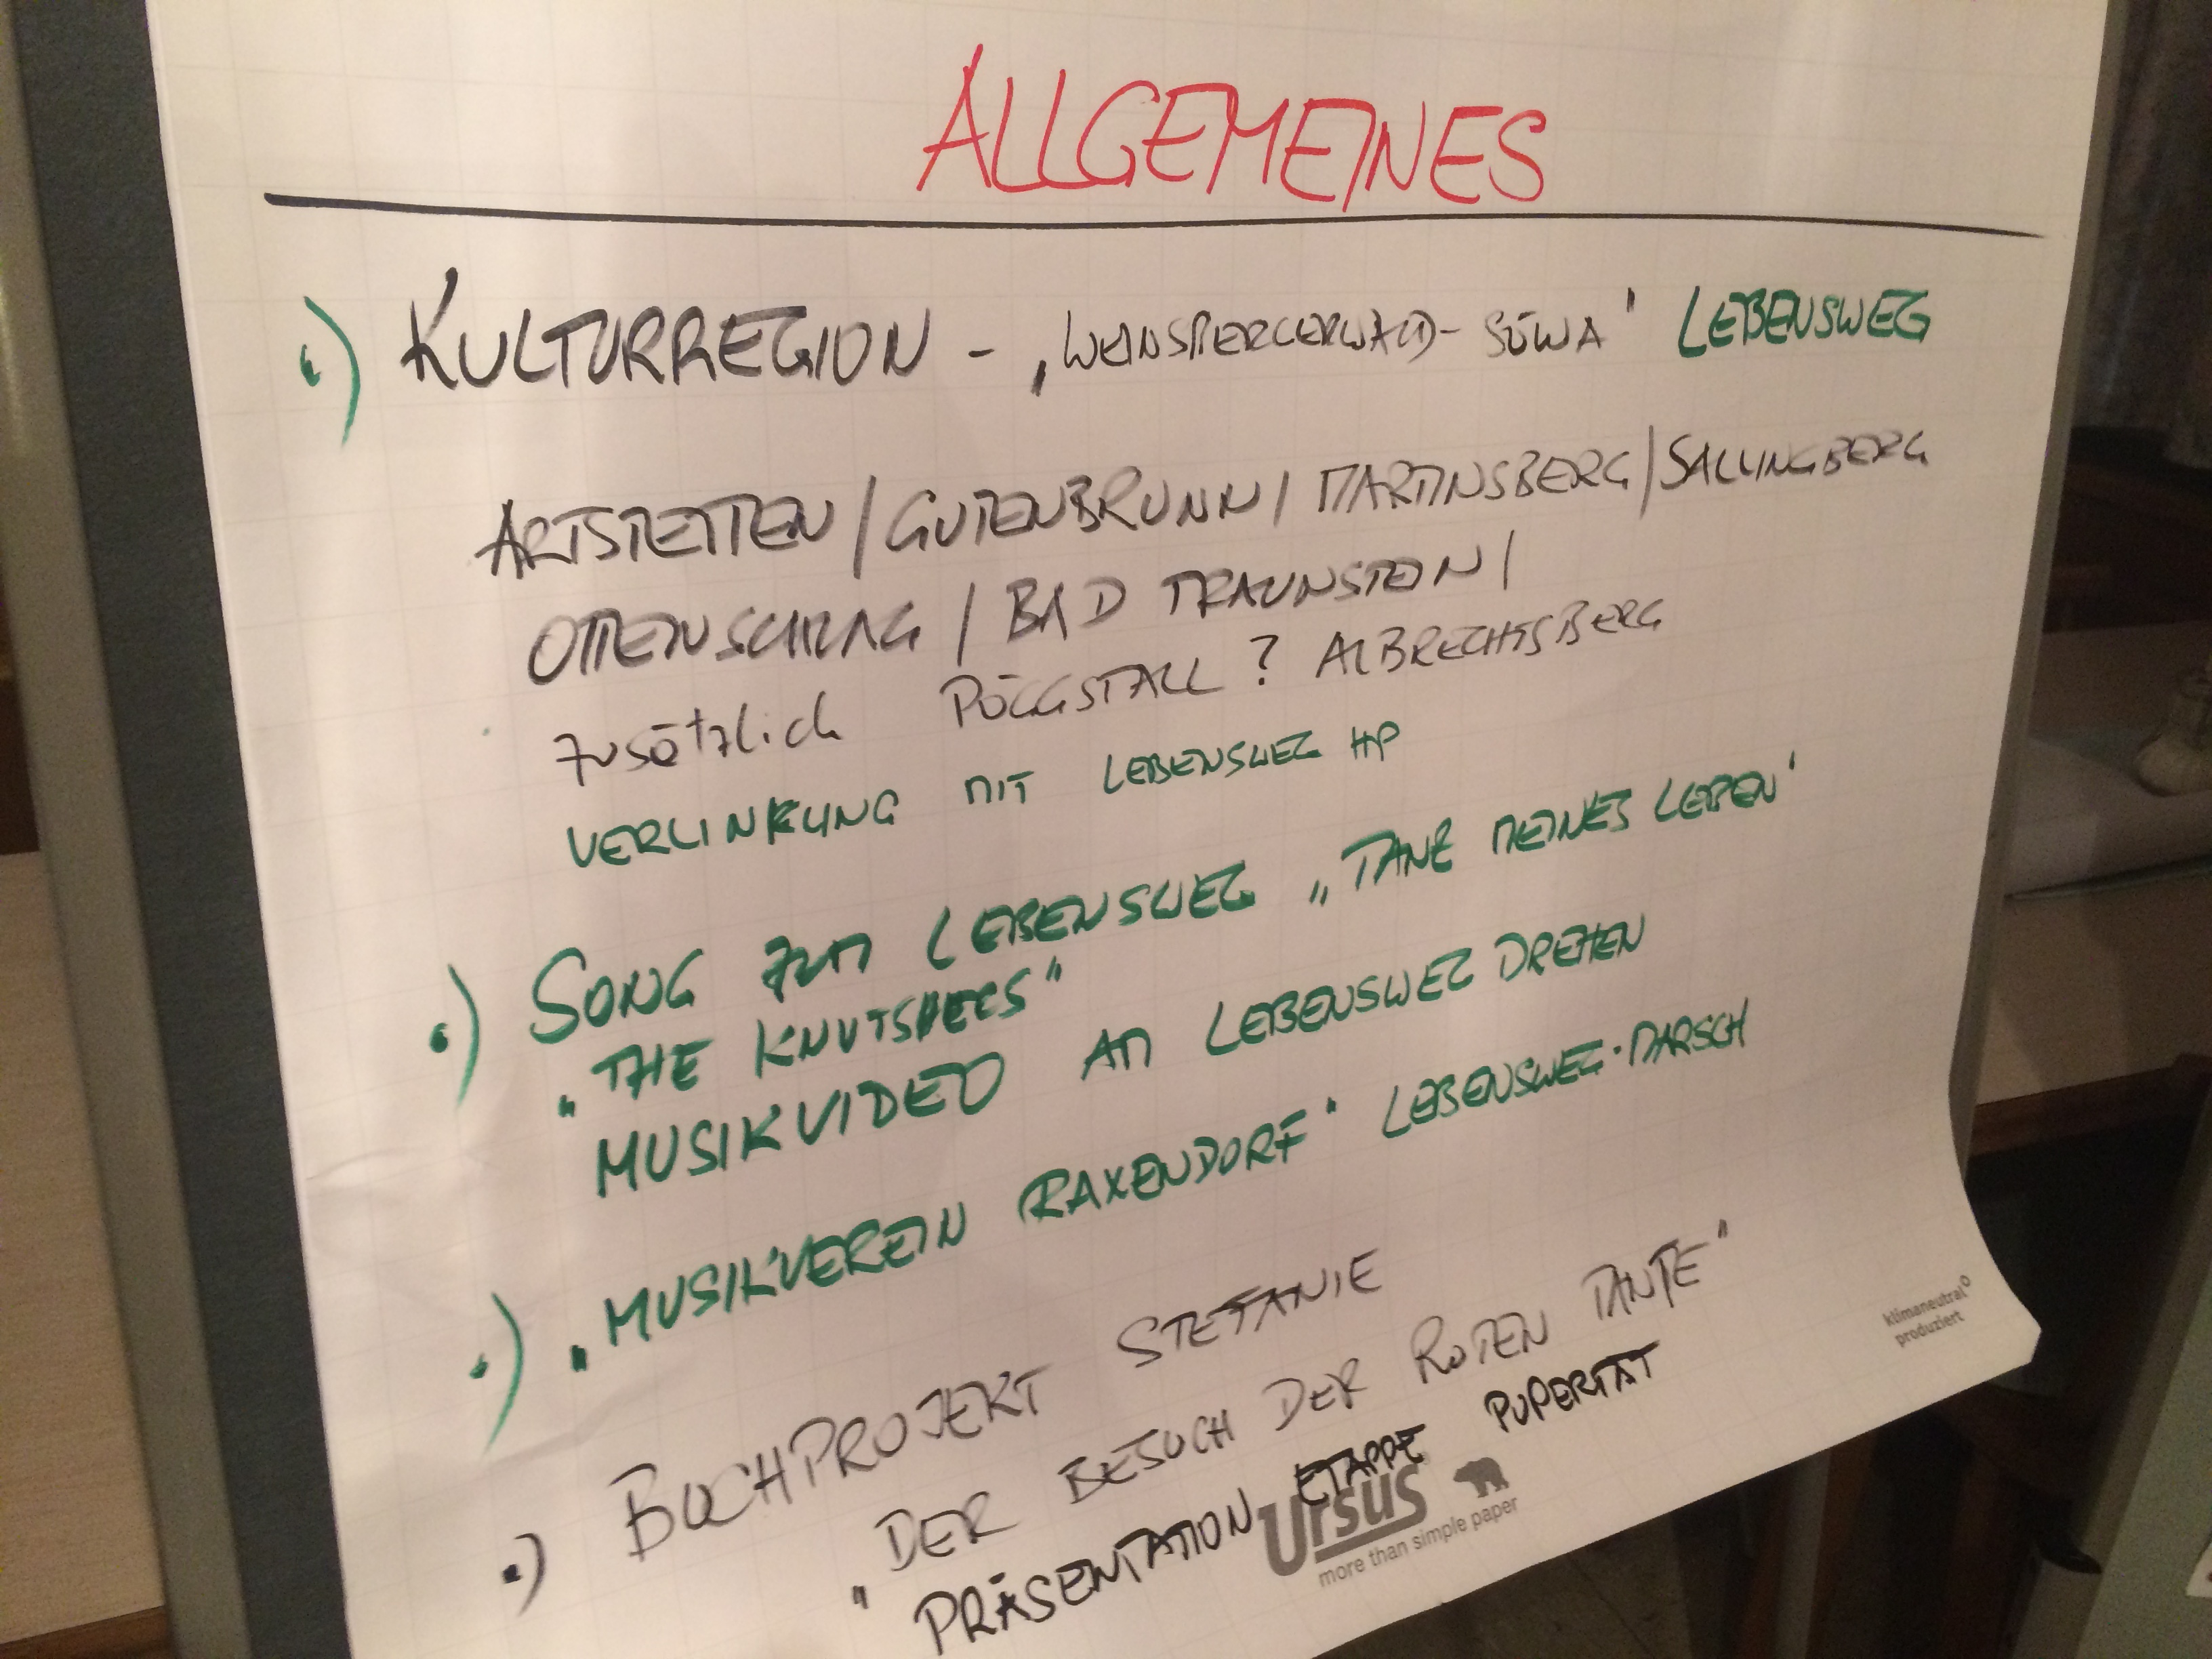 ALLGEMEINES
.) KULTURREGION - „WEINSPERGERWALD- SÜWA" LEBENSWEG
ARTSTETTEN / GUTENBRUNN / MARTINSBERG / SALLINGBERG
OTTENSCHLAG / BAD TRAUNSTEIN /
zusätzlich PÖGGSTALL ? ALBRECHTSBERG
VERLINKUNG MIT LEBENSWEG HP
.) SONG ZUM LEBENSWEG „TANZ MEINES LEBEN"
„THE KNUTSPECS"
MUSIKVIDEO AM LEBENSWEG DREHEN
.) „MUSIKVEREIN RAXENDORF" LEBENSWEG-MARSCH
.) BUCHPROJEKT STEFANIE
"DER BESUCH DER ROTEN TANTE"
PRÄSENTATION ETAPPE PUPERTÄT
klimaneutral
produziert
Ursus
more than simple paper